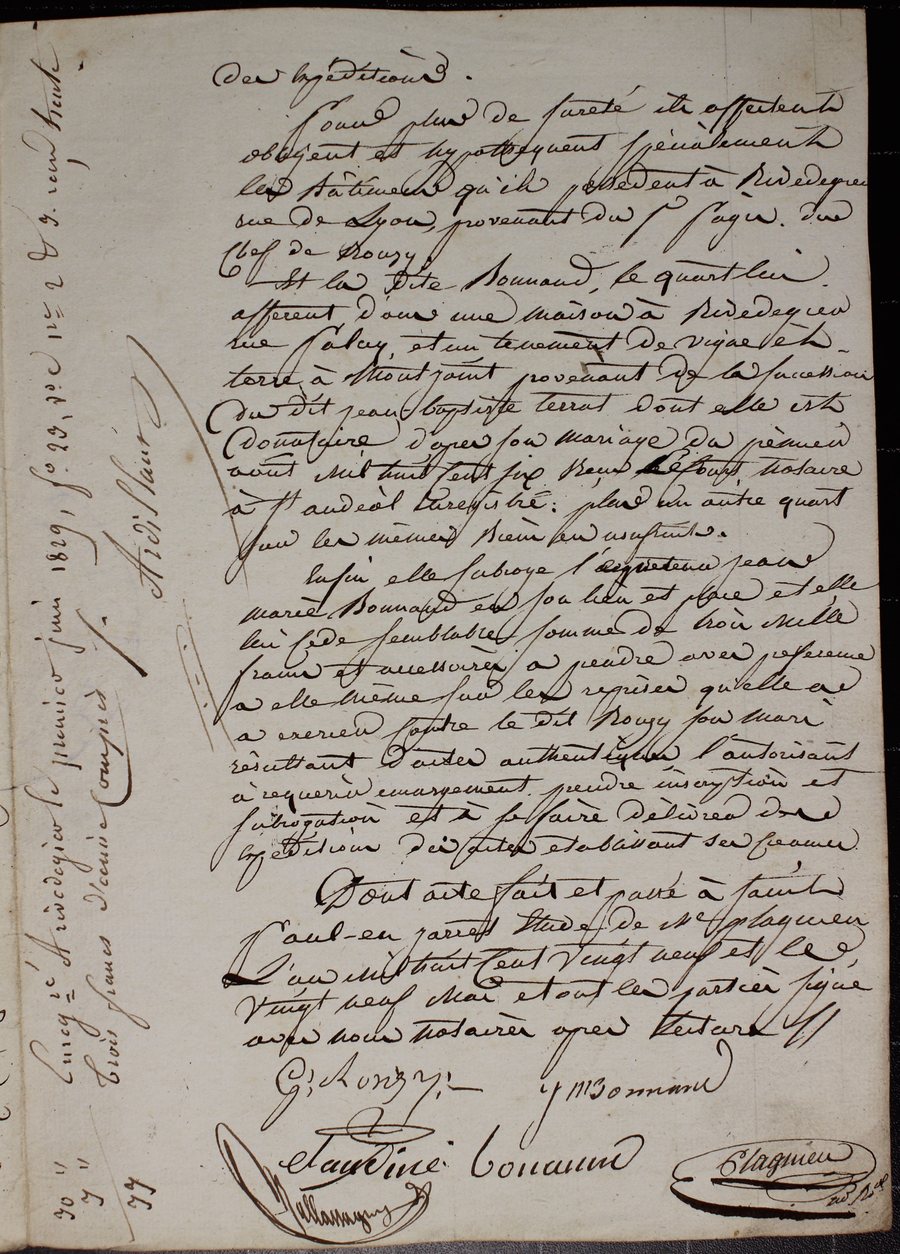 des expéditions.
Pour plus de sureté ils affectent
obligent et hypothequent spécialement
les bâtimens qu'ils possedent à Rivedegier
rue de Lyon, provenant du Sr
Chef de Ronzy.
Et la dite Bonnand, le quart lui
afferent d'une maison à Rivedegier
rue et un tenement de vigne et
terre, à Montjoint provenant de la succession
du dit jean baptiste terrat dont elle est
donataire d'apres son mariage du premier
août mil huit cent six Reçu notaire
à St andéol Enregistré. plus un autre quart
sur les mêmes Biens en usufruit.
Enfin elle subroge l'acquereur jean
marie Bonnand en son lieu et place et elle
lui cède semblable somme de trois mille
francs et accessoires a prendre avec preference
a elle même sur les reprises qu'elle a
a exercer contre le dit Ronzy son mari
résultant d'actes authentiques l'autorisant
à requerir emargement prendre inscription et
subrogation et à se faire délivrer des
expéditions des actes etablissant ses creances
Dont acte fait et passé à saint
Paul-en jarrest Etude de Me plagnieu
L'an mil huit Cent vingt neuf et le
vingt neuf Mai et ont les parties signé
avec nous notaires apres lecture
G. Ronzy
J M Bonnand
Claudine bonannd
Plagnieu
Enregré à Rivedegier le premier juin 1829, fo. 23, vo. c 1re 2 & 3. reçu trente
trois francs dixième Compris
Ardillaux
30 "
3 "
33